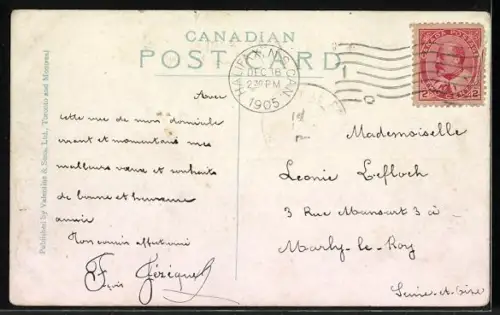 CANADIAN
POST CARD
HALIFAX, N.S. CAN.
DEC 18
2 30 PM
1905
CANADA POSTAGE
2 2
Published by Valentine & Sons, Ltd., Toronto and Montreal
Avec
cette vue de mon domicile
vivant et momentané mes
meilleurs vœux et souhaits
de bonne et heureuse
année
Ton cousin affectionné
F. Jézéquel
Mademoiselle
Leonie Lefloch
3 Rue Mansart 3 à
Marly-le-Roy
Seine-et-Oise